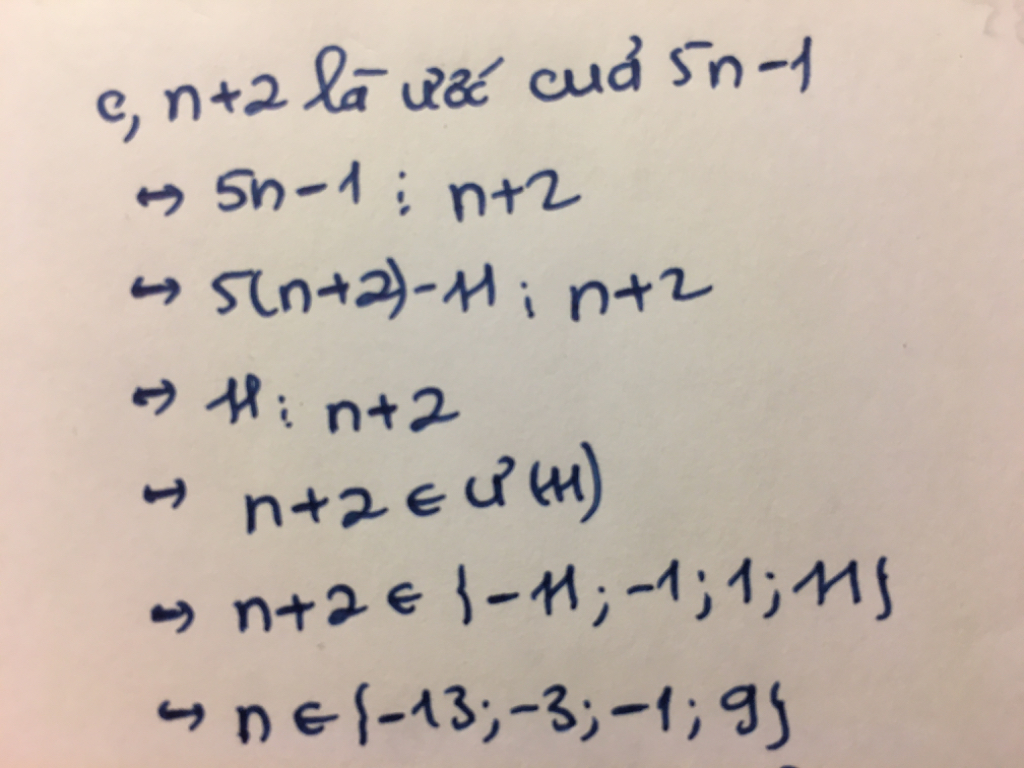 c, n+2 là ước của 5n-1
↔ 5n-1 ⋮ n+2
↔ 5(n+2)-11 ⋮ n+2
↔ 11 ⋮ n+2
↔ n+2 ∈ Ư(11)
↔ n+2 ∈ {-11; -1; 1; 11}
↔ n ∈ {-13; -3; -1; 9}